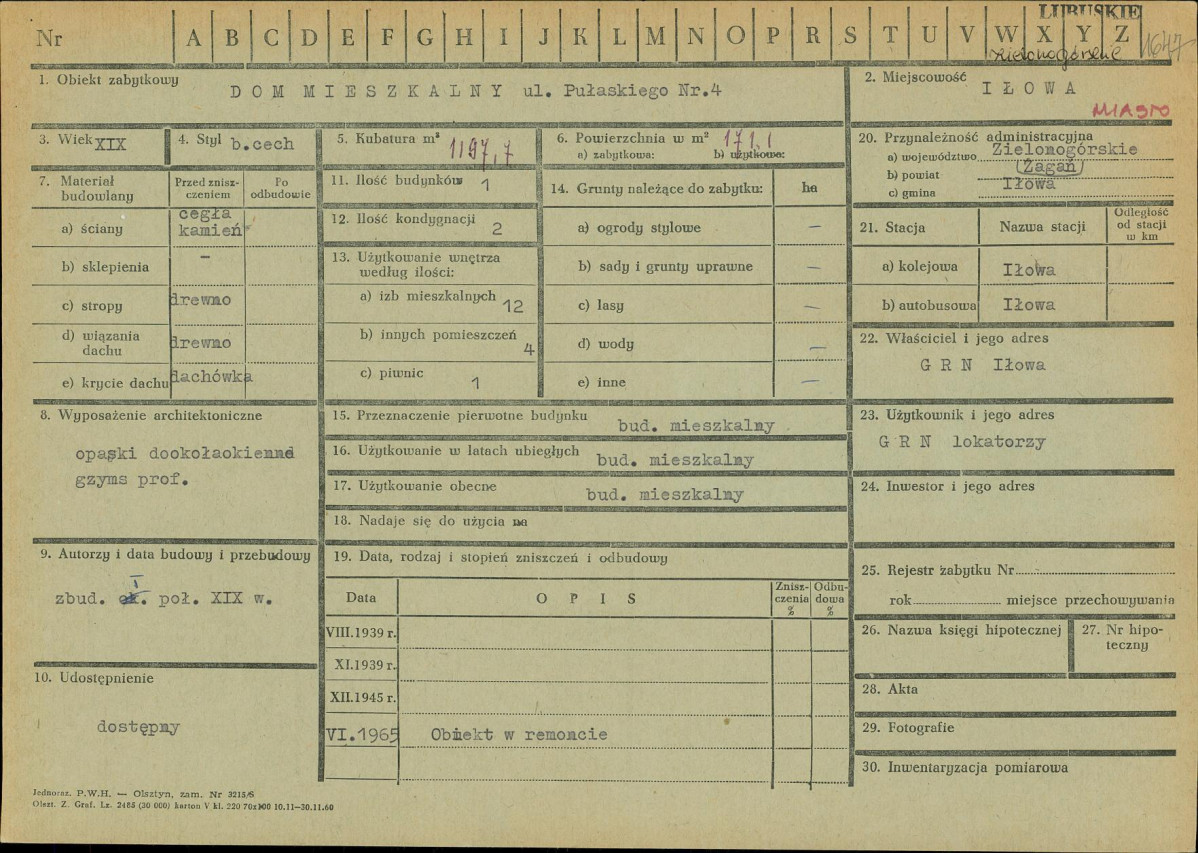 LUBUSKIE
Nr A B C D E F G H I J K L M N O P R S T U V W X Y Z
zielonogórskie
1647
1. Obiekt zabytkowy
DOM MIESZKALNY ul. Pułaskiego Nr.4
2. Miejscowość
IŁOWA
MIASTO
3. Wiek XIX
4. Styl b.cech
5. Kubatura m³ 1197,7
6. Powierzchnia w m² 171,1
a) zabytkowa: b) użytkowa:
7. Materiał budowlany
Przed zniszczeniem
Po odbudowie
a) ściany cegła kamień
b) sklepienia –
c) stropy drewno
d) wiązania dachu drewno
e) krycie dachu dachówka
8. Wyposażenie architektoniczne
opaski dookołaokienne
gzyms prof.
9. Autorzy i data budowy i przebudowy
I
zbud. ok. poł. XIX w.
10. Udostępnienie
dostępny
11. Ilość budynków 1
12. Ilość kondygnacji 2
13. Użytkowanie wnętrza
według ilości:
a) izb mieszkalnych 12
b) innych pomieszczeń 4
c) piwnic 1
14. Grunty należące do zabytku: ha
a) ogrody stylowe —
b) sady i grunty uprawne —
c) lasy —
d) wody —
e) inne —
15. Przeznaczenie pierwotne budynku bud. mieszkalny
16. Użytkowanie w latach ubiegłych bud. mieszkalny
17. Użytkowanie obecne bud. mieszkalny
18. Nadaje się do użycia na
19. Data, rodzaj i stopień zniszczeń i odbudowy
Data OPIS Zniszczenia % Odbudowa %
VIII.1939 r.
XI.1939 r.
XII.1945 r.
VI.1965 Obiekt w remoncie
20. Przynależność administracyjna
a) województwo Zielonogórskie
b) powiat Żagań
c) gmina Iłowa
21. Stacja Nazwa stacji Odległość od stacji w km
a) kolejowa Iłowa
b) autobusowa Iłowa
22. Właściciel i jego adres
G R N Iłowa
23. Użytkownik i jego adres
G R N lokatorzy
24. Inwestor i jego adres
25. Rejestr zabytku Nr
rok miejsce przechowywania
26. Nazwa księgi hipotecznej
27. Nr hipoteczny
28. Akta
29. Fotografie
30. Inwentaryzacja pomiarowa
Jednoraz. P.W.H. — Olsztyn, zam. Nr 3215/S
Olszt. Z. Graf. Lz. 2485 (30 000) karton V kl. 220 70x100 10.11—30.11.60